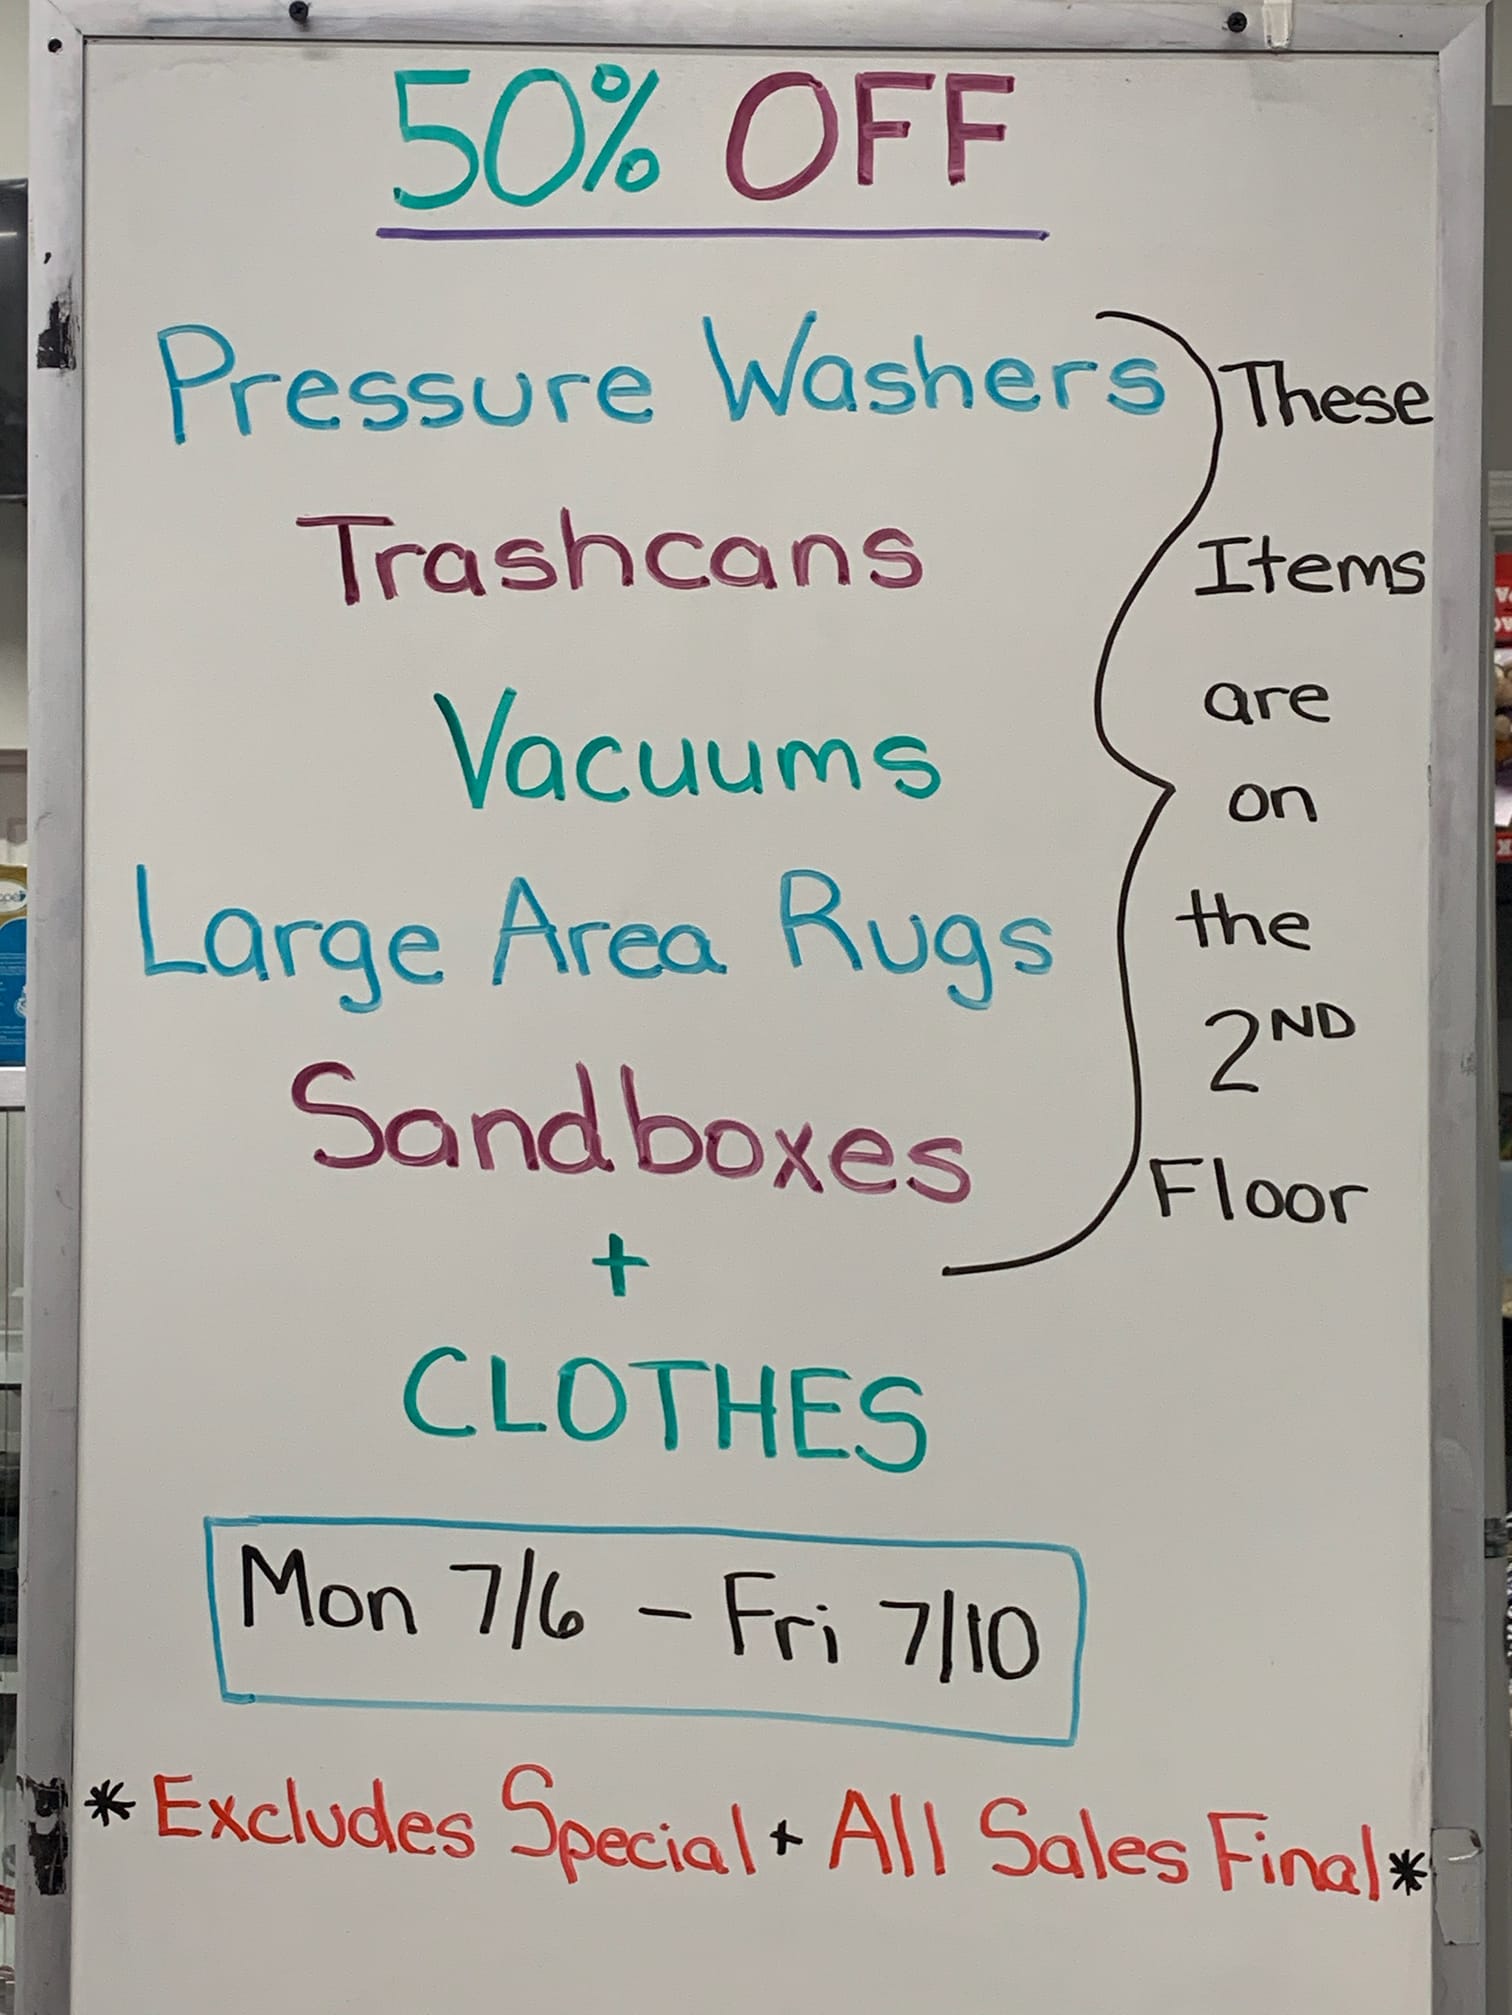 50% OFF
Pressure Washers
Trashcans
Vacuums
Large Area Rugs
Sandboxes
+
CLOTHES
These
Items
are
on
the
2ND
Floor
Mon 7/6 – Fri 7/10
*Excludes Special + All Sales Final*